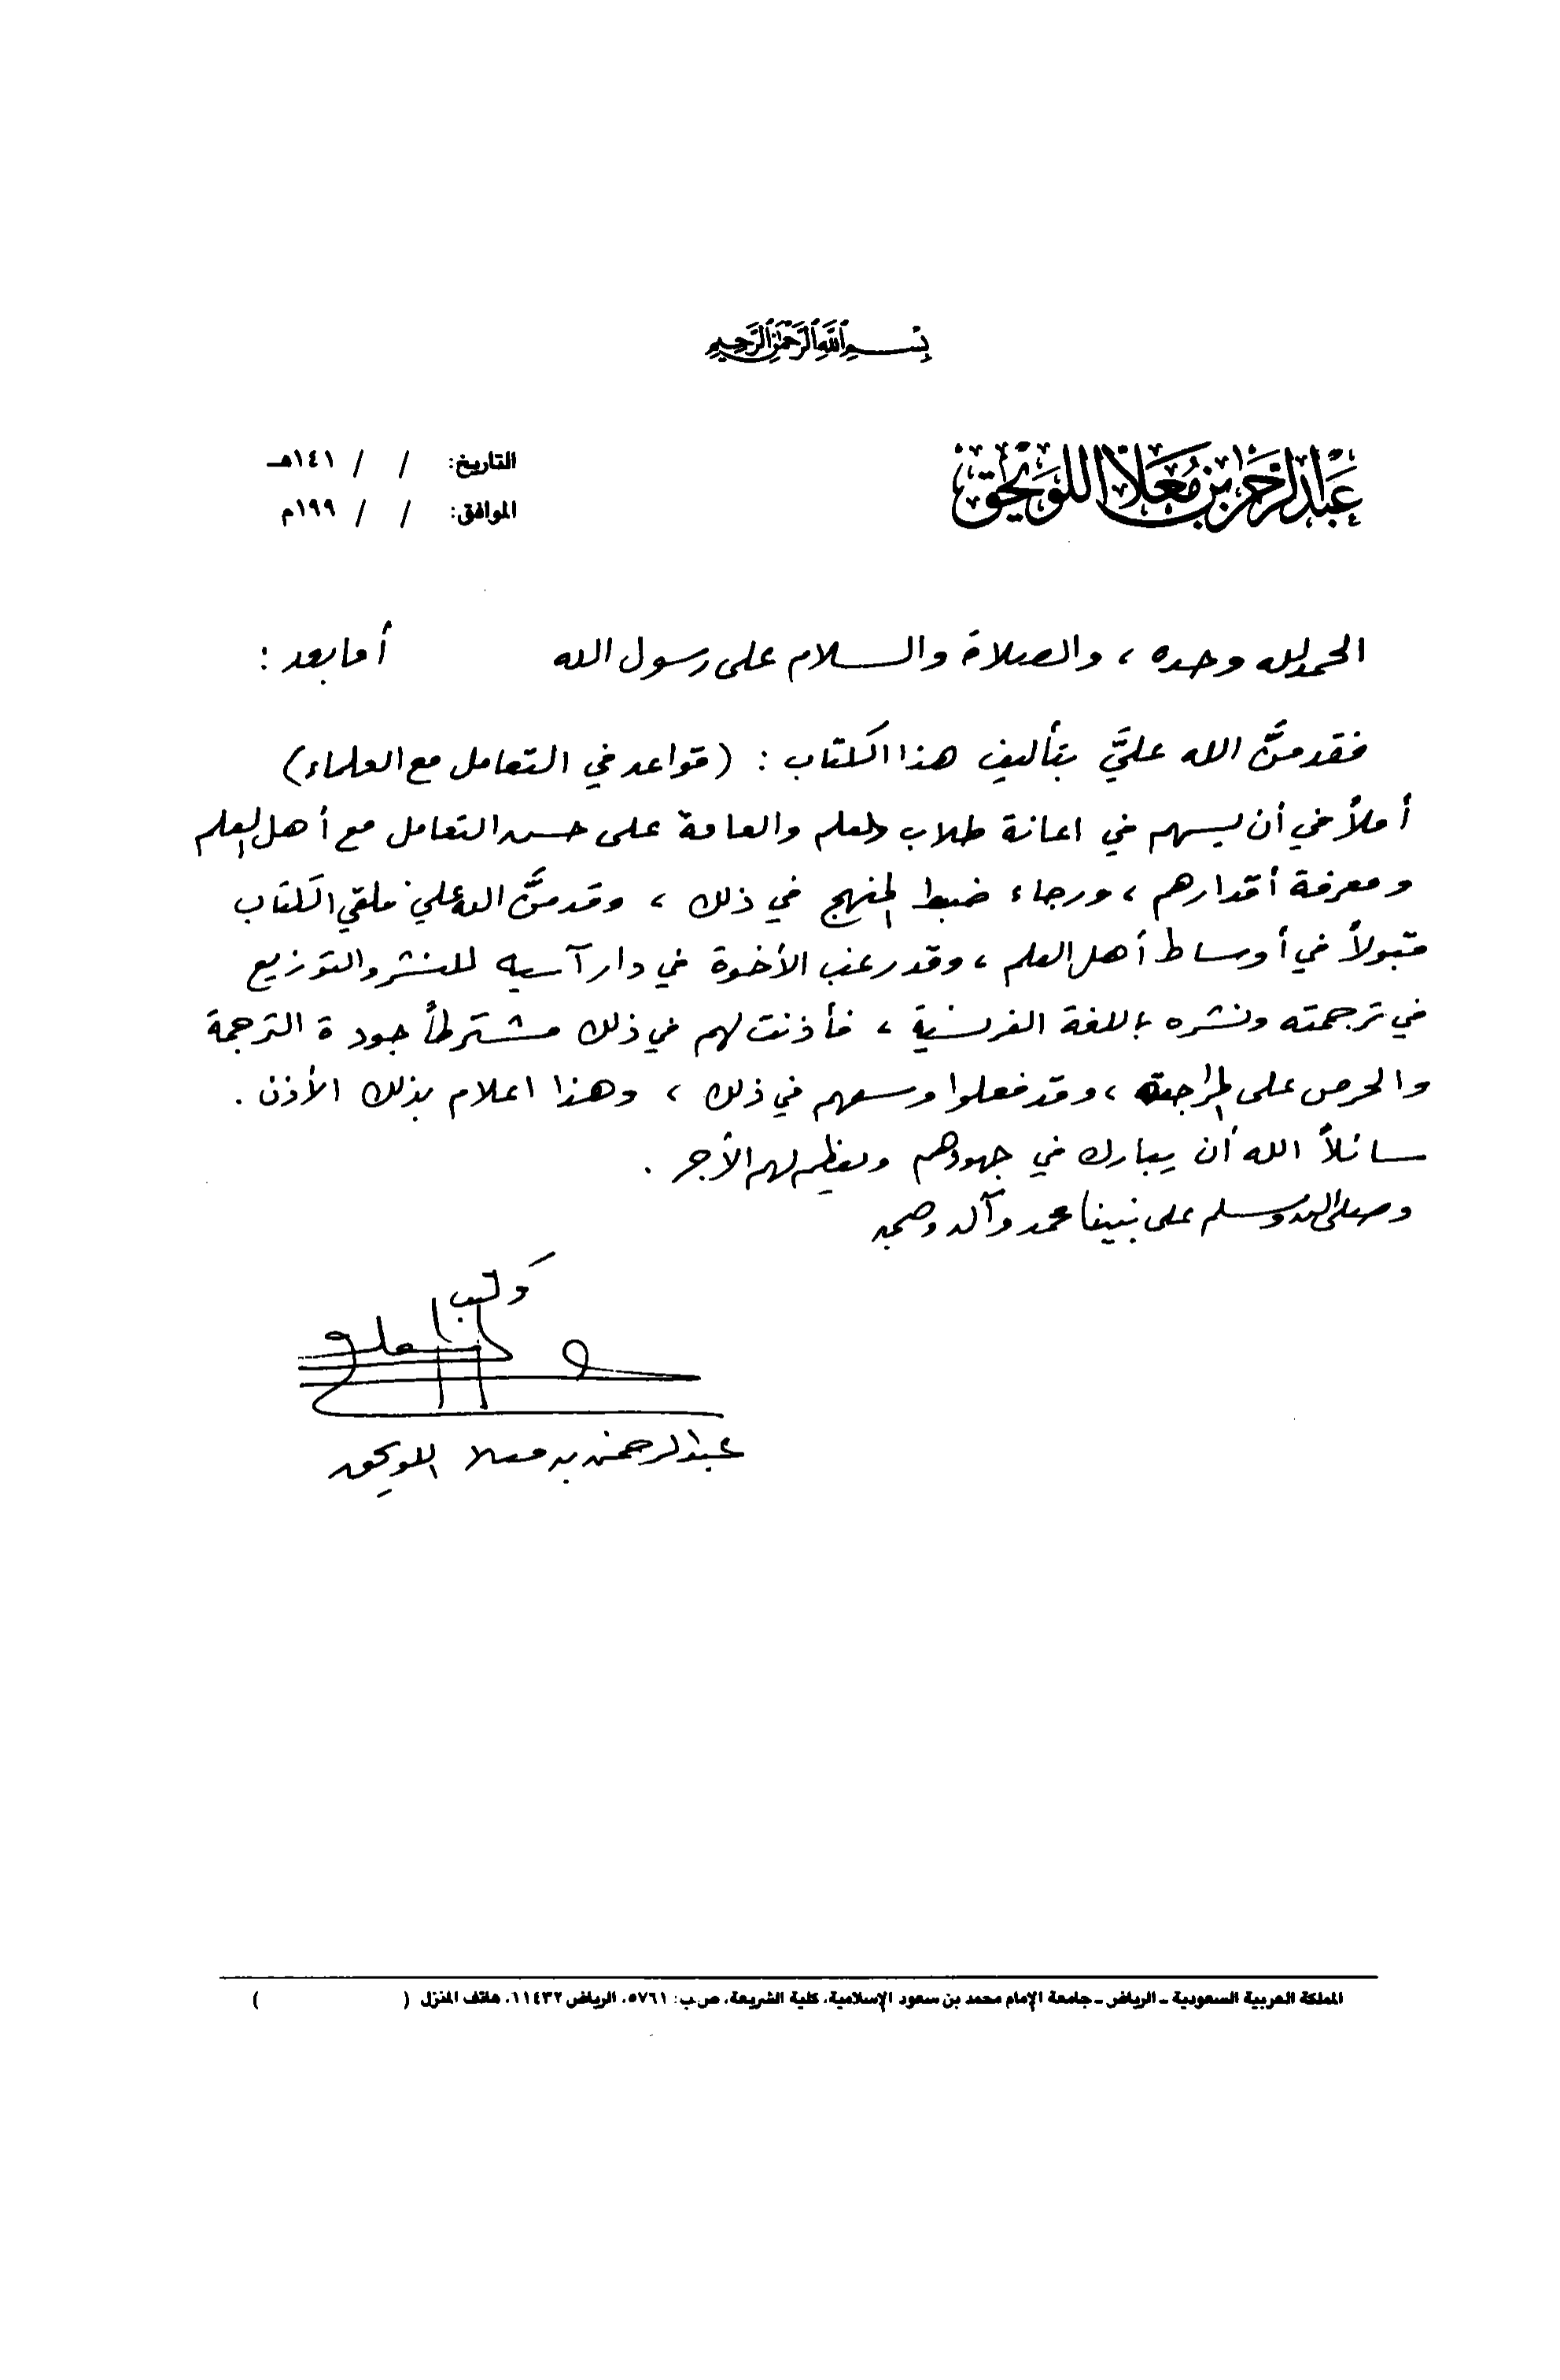 بسم الله الرحمن الرحيم
عبدالرحمن بن معلا اللويحق
التاريخ: / / ١٤١هـ
الموافق: / / ١٩٩م
الحمد لله وحده ، والصلاة والسلام على رسول الله أما بعد :
فقد منَّ الله عليَّ بتأليف هذا الكتاب : (قواعد في التعامل مع العلماء)
أملاً في أن يسهم في اعانة طلاب العلم والعامة على حسن التعامل مع أهل العلم
ومعرفة أقدارهم ، ورجاء ضبط المنهج في ذلك ، وقد منَّ الله علي فلقي الكتاب
قبولاً في أوساط أهل العلم ، وقد رغب الأخوة في دار آسيه للنشر والتوزيع
في ترجمته ونشره باللغة الفرنسية ، فأذنت لهم في ذلك مشترطاً جودة الترجمة
والحرص على المراجعة ، وقد فعلوا وسعهم في ذلك ، وهذا اعلام بذلك الأذن .
سائلاً الله أن يبارك في جهودهم ويعظم لهم الأجر .
وصلى الله وسلم على نبينا محمد وآله وصحبه
وكتب
عبدالرحمن بن معلا اللويحق
المملكة العربية السعودية - الرياض - جامعة الإمام محمد بن سعود الإسلامية، كلية الشريعة، ص.ب: ٥٧٦١، الرياض ١١٤٣٢، هاتف المنزل ( )